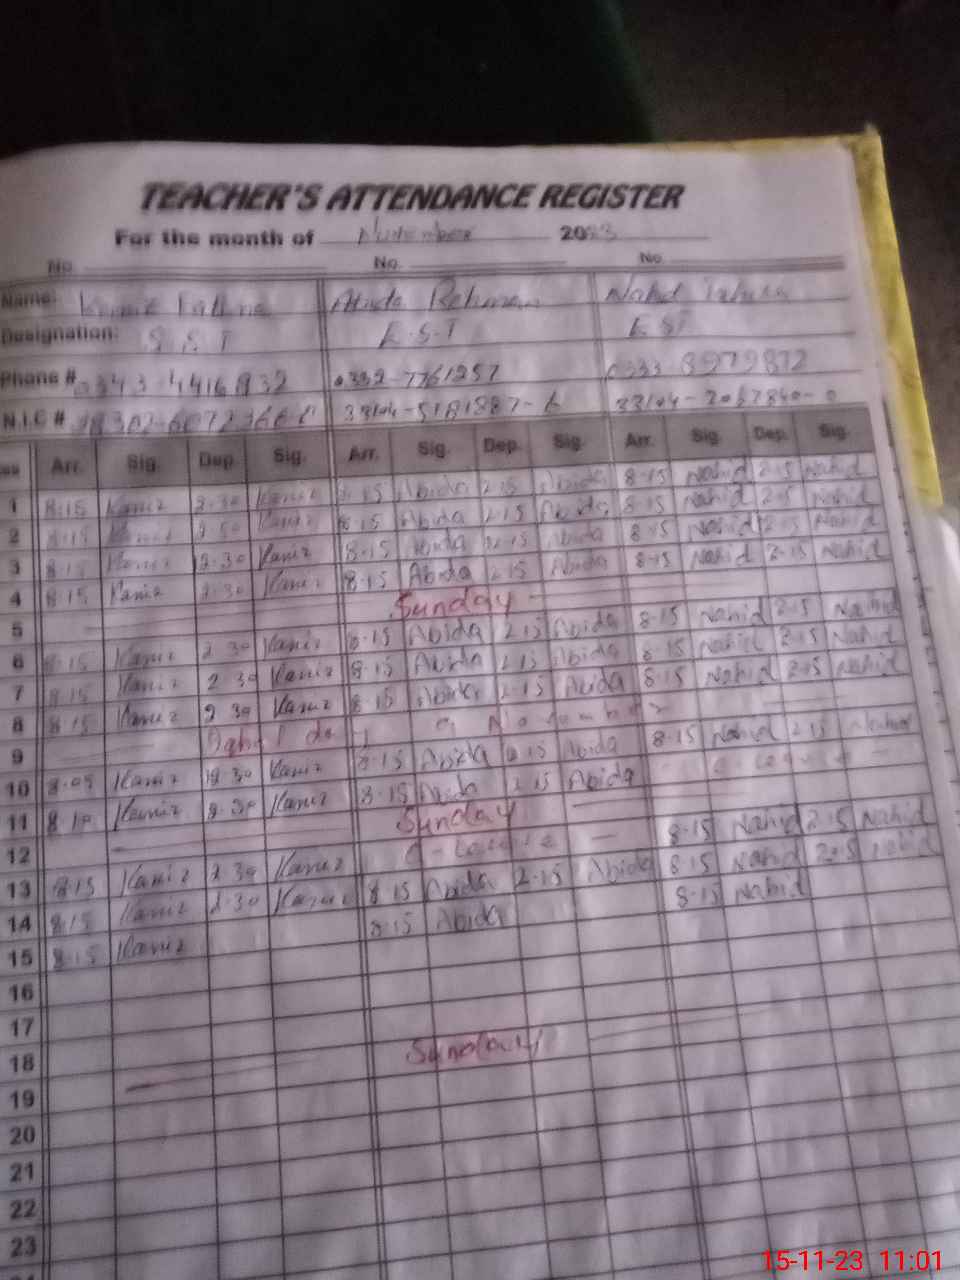 TEACHER'S ATTENDANCE REGISTER
For the month of November 2023
No. No. No.
Name: Abida Rehman Nahid
Designation: S.S.T E.S.T EST
Phone # 0332-7761257 0333 8979872
N.I.C #
Arr. Sig. Dep. Sig. Arr. Sig. Dep. Sig. Arr. Sig. Dep. Sig.
1 8:15 Kaniz 2.30 Kaniz 8.15 Abida 2.15 Abida 8.15 Nahid 2.15 Nahid
2 8:15 Kaniz Kaniz 8.15 Abida 2.15 Abida 8.15 Nahid 2.15 Nahid
3 8:15 Kaniz 2.30 Kaniz 8.15 Abida 2.15 Abida 8.15 Nahid 2.15 Nahid
4 8:15 Kaniz 2.30 Kaniz 8.15 Abida 2.15 Abida 8.15 Nahid 2.15 Nahid
5 Sunday
6 8:15 Kaniz 2.30 Kaniz 8.15 Abida 2.15 Abida 8.15 Nahid 2.15 Nahid
7 8:15 Kaniz 2.30 Kaniz 8.15 Abida 2.15 Abida 8.15 Nahid 2.15 Nahid
8 8:15 Kaniz 2.30 Kaniz 8.15 Abida 2.15 Abida 8.15 Nahid 2.15 Nahid
9 Iqbal day 9 November
10 8.05 Kaniz 12.30 Kaniz 8.15 Abida Abida 8.15 Nahid 2.15 Nahid
11 8.10 Kaniz 2.30 Kaniz 8.15 Abida 2.15 Abida C-Leave
12 Sunday
13 8:15 Kaniz 2.30 Kaniz C-Leave 8.15 Nahid 2.15 Nahid
14 8:15 Kaniz 2.30 Kaniz 8.15 Abida 2.15 Abida 8.15 Nahid 2.15 Nahid
15 8:15 Kaniz 8.15 Abida 8.15 Nahid
16
17
18
19 Sunday
20
21
22
23
15-11-23 11:01